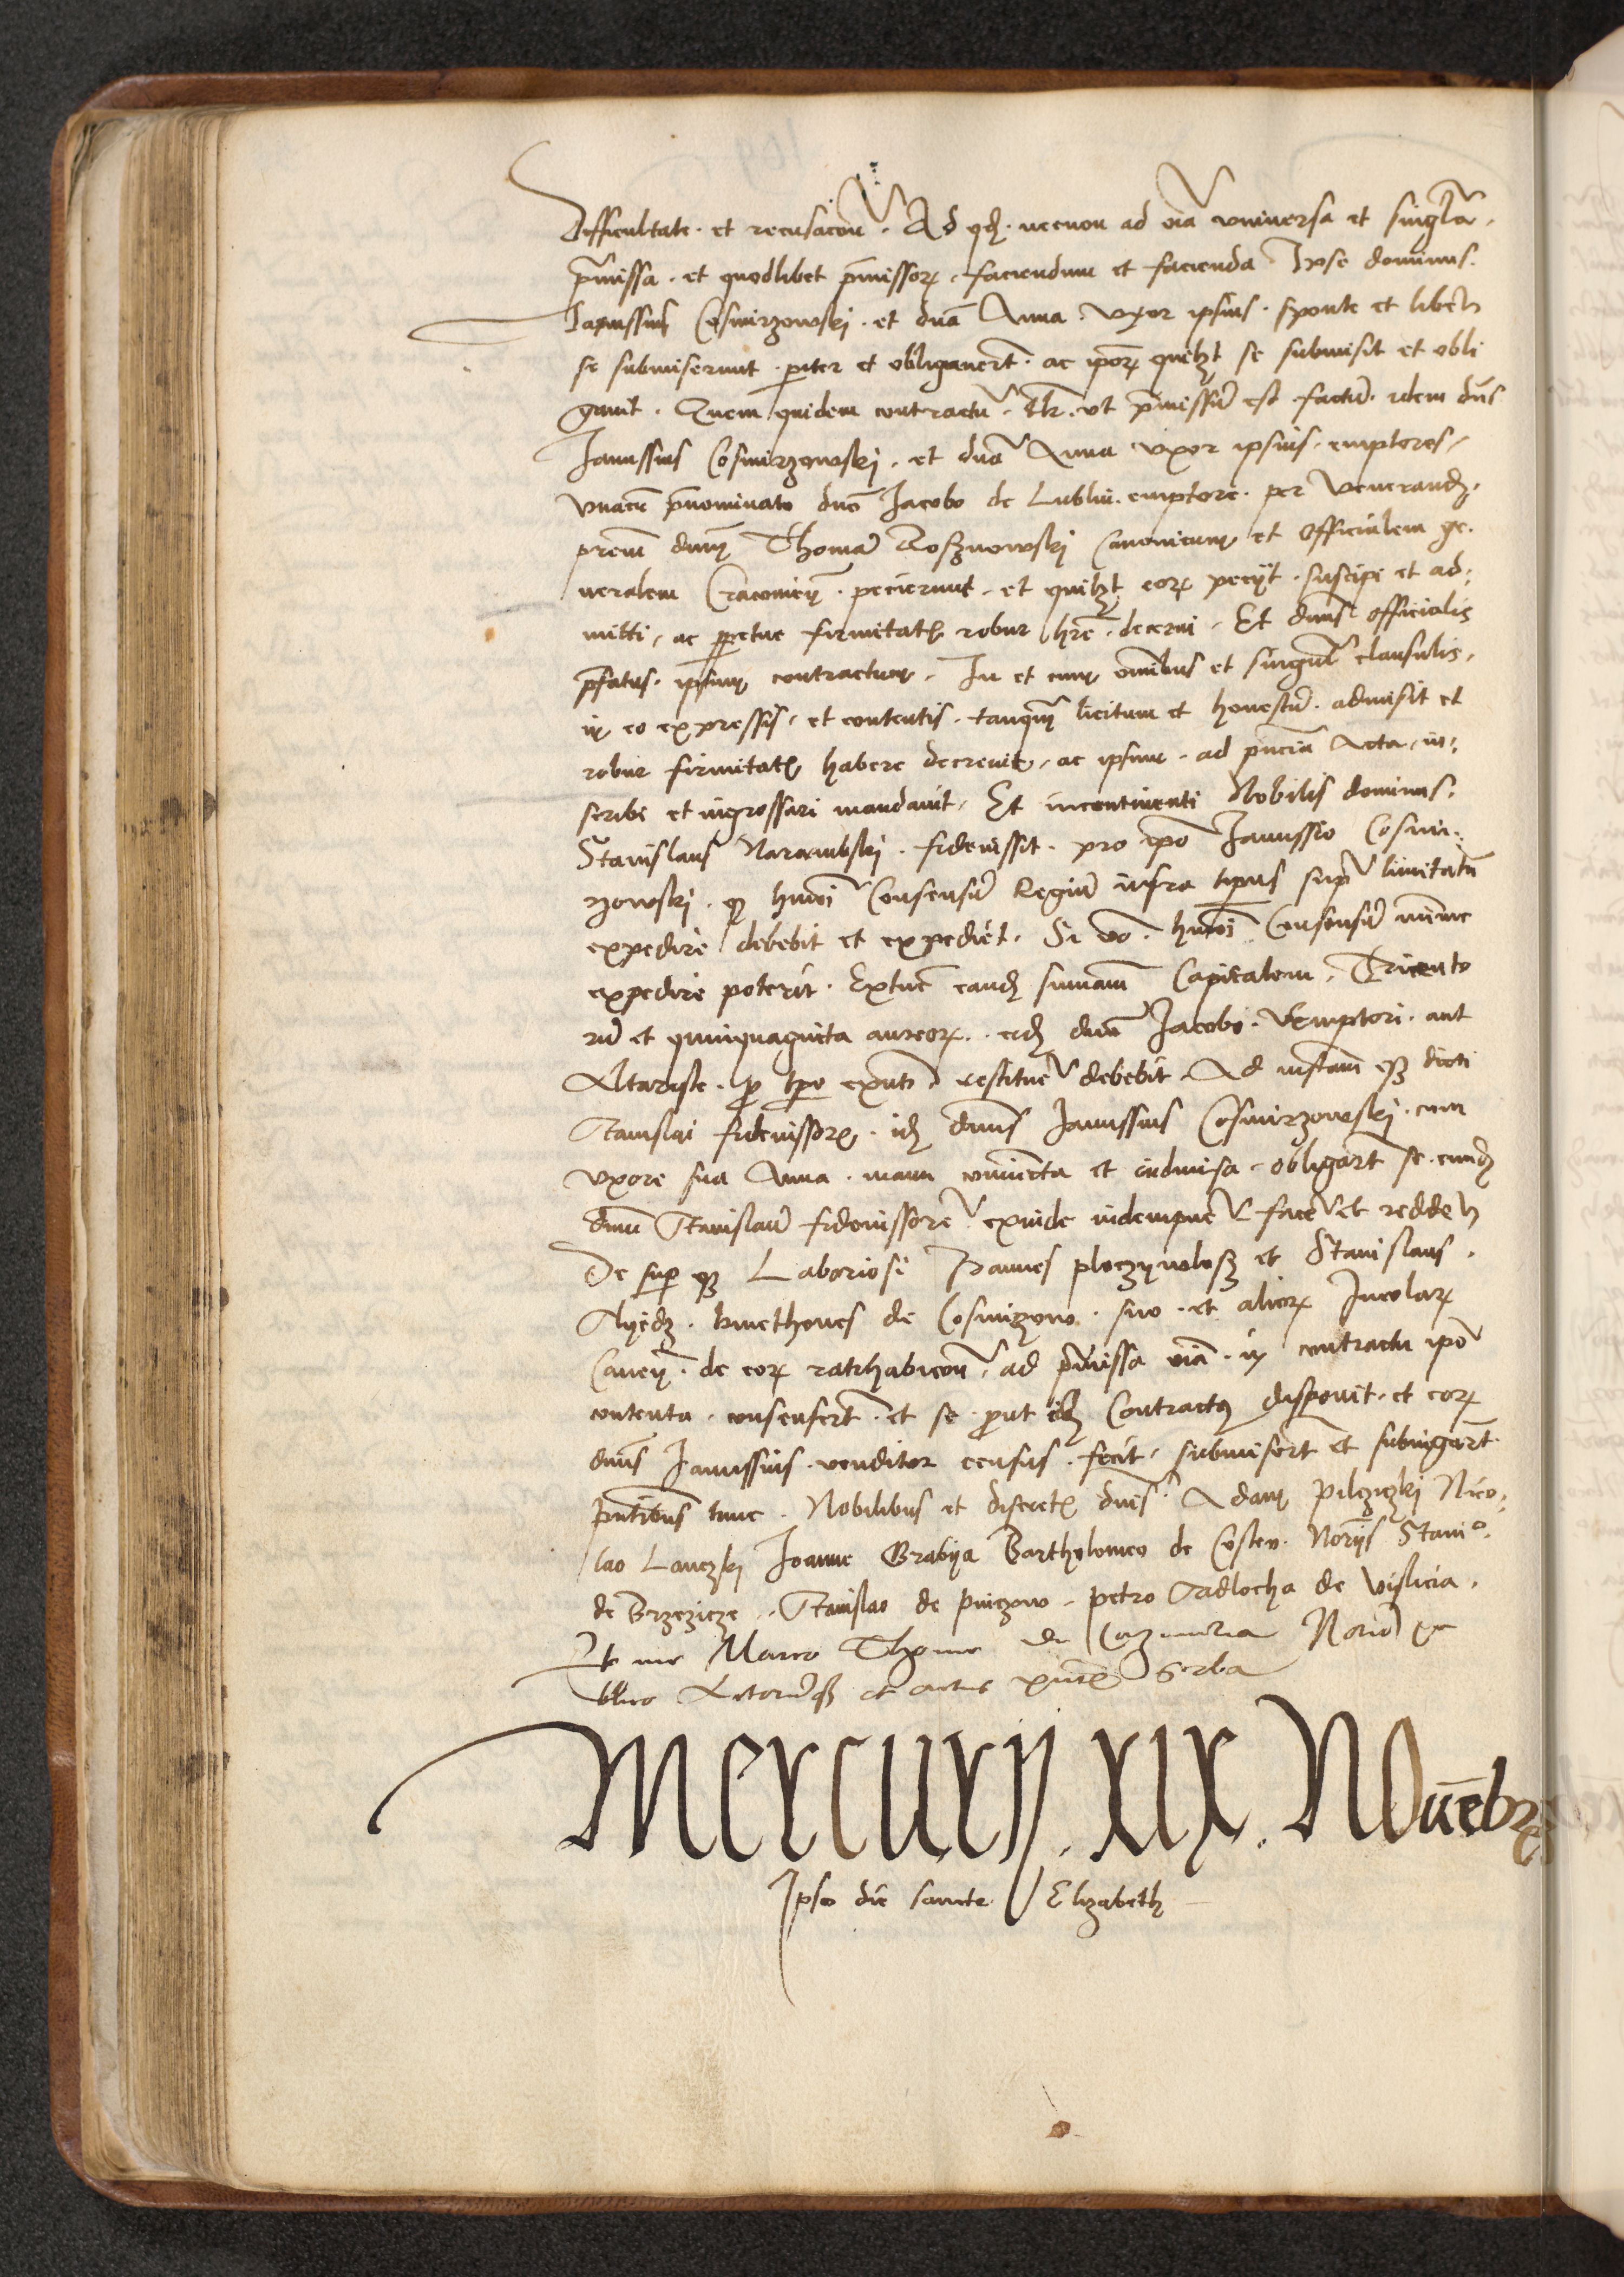 Difficultate · et recusacōn · Ad qđ · necnon ad oīa vniuersa et singl̄a ·
p̄missa · et quodlibet p̄missoꝝ · faciendum et facienda Ipse dominus ·
Janussius Cosmirzowski · et dnā Anna · vxor ipsius · sponte et liben̄
se submiserunt · pariter et obligauer̄t · ac ip̄oꝝ quilꝫt se submisit et obli
gauit · Quem quidem contractū · vt p̄missū est · factū · idem dn̄s
Janussius Cosmirzowski · et dnā Anna vxor ipsius · emptores ·
vnacū p̄nominato dn̄o Jacobo de Lublin · emptore · per venerandꝫ ·
prem̄ dnm̄ Thomā Rosznowski Canonicum et Officialem ge ·
neralem Cracouien̄ · pecierunt · et quilꝫt eoꝝ peciit · suscipi et ad ·
mitti · ac ꝑpetue firmitatꝭ robur hr̄e · decerni · Et dn̄us Officialis
p̄fatus · ipsum contractum · In et cum om̄ibus et singul̄ clausulis ·
in eo expressis · et contentis · tanqm̄ licitum et honestū · admisit et
robur firmitatꝭ habere decreuit · ac ipsum · ad pn̄cia Acta · in ·
scribi et ingrossari mandauit · Et incontinenti Nobilis dominus ·
Stanislaus Narambski · fideiussit · pro ip̄o Janussio Cosmir ·
zowski · qꝫ hmōi Consensū Regiū infra tp̄us sup̄ limitatū
expedire debebit et expediet · Si vō · hmōi Consensū minime
expedire poterit · Extunc eandꝫ summam Capitalem · Tricento
rū et quinquaginta aureoꝝ · eidꝫ dn̄o Jacobo · Emptori · aut
Altariste · ꝓ tp̄e exn̄ti · restituē debebit · Ad instan̄ eꝫ dicti
Stanislai fideiussorꝭ · idꝫ dn̄us Janussius Cosmirzowski · cum
vxore sua Anna · manu coniuncta et indiuisa · obligar̄t se · eundꝫ
dnm̄ Stanislaū fideiussorē · exinde indempnē facē et redden̄
De sup̄ qꝫ Laboriosi Joannes et Stanislaus ·
kmethones de Cosmirzow · suo · et alioꝝ Incolaꝝ
de eoꝝ ratihabicōn · ad p̄missa oīa · in contractu ip̄o
contenta · consenser̄t · et se · ꝓut idꝫ Contractus disponit · et eoꝝ
dn̄us Janussius · venditor census · fecit · submiser̄t et subiugar̄t ·
Pn̄tibus tunc · Nobilibus et discretꝭ dn̄is · Adam Pilcziczki Nico ·
lao Lanczki Joanne Grabya Bartholomeo de Costen · Norijs Stani° ·
de Brzezicze · Stanislao de Pinczow · Petro Sadlocha de Vislicia ·
Et me Marco Thome de Notario
blico Actorūqꝫ Scriba
Mercurij · xix · Nouēbrꝭ
Ipso die sancte Elizabeth